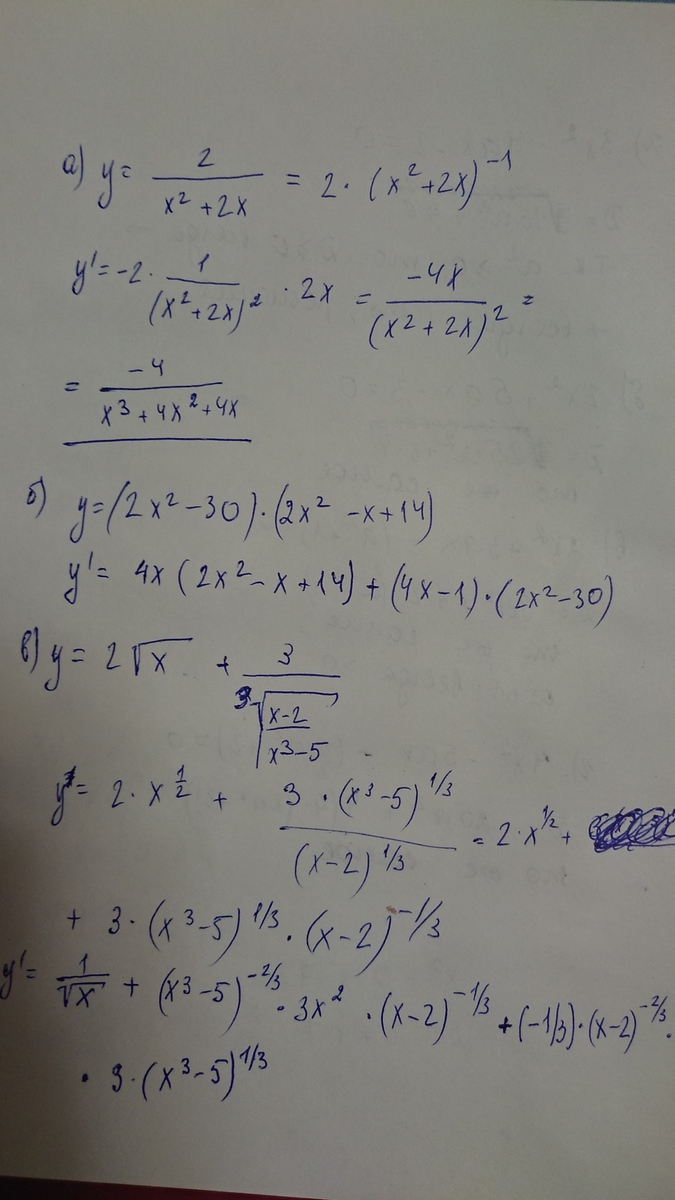 а) y = 2/(x² + 2x) = 2 · (x² + 2x)⁻¹
y' = -2 · 1/(x² + 2x)² · 2x = -4x/(x² + 2x)² =
= -4/(x³ + 4x² + 4x)
б) y = (2x² - 30) · (2x² - x + 14)
y' = 4x (2x² - x + 14) + (4x - 1) · (2x² - 30)
в) y = 2√x + 3/∛((x-2)/(x³-5))
y = 2 · x^(1/2) + 3 · (x³ - 5)^(1/3)/(x - 2)^(1/3) = 2 · x^(1/2) +
+ 3 · (x³ - 5)^(1/3) · (x - 2)^(-1/3)
y' = 1/√x + (x³ - 5)^(-2/3) · 3x² · (x - 2)^(-1/3) + (-1/3) · (x - 2)^(-2/3) ·
· 3 · (x³ - 5)^(1/3)